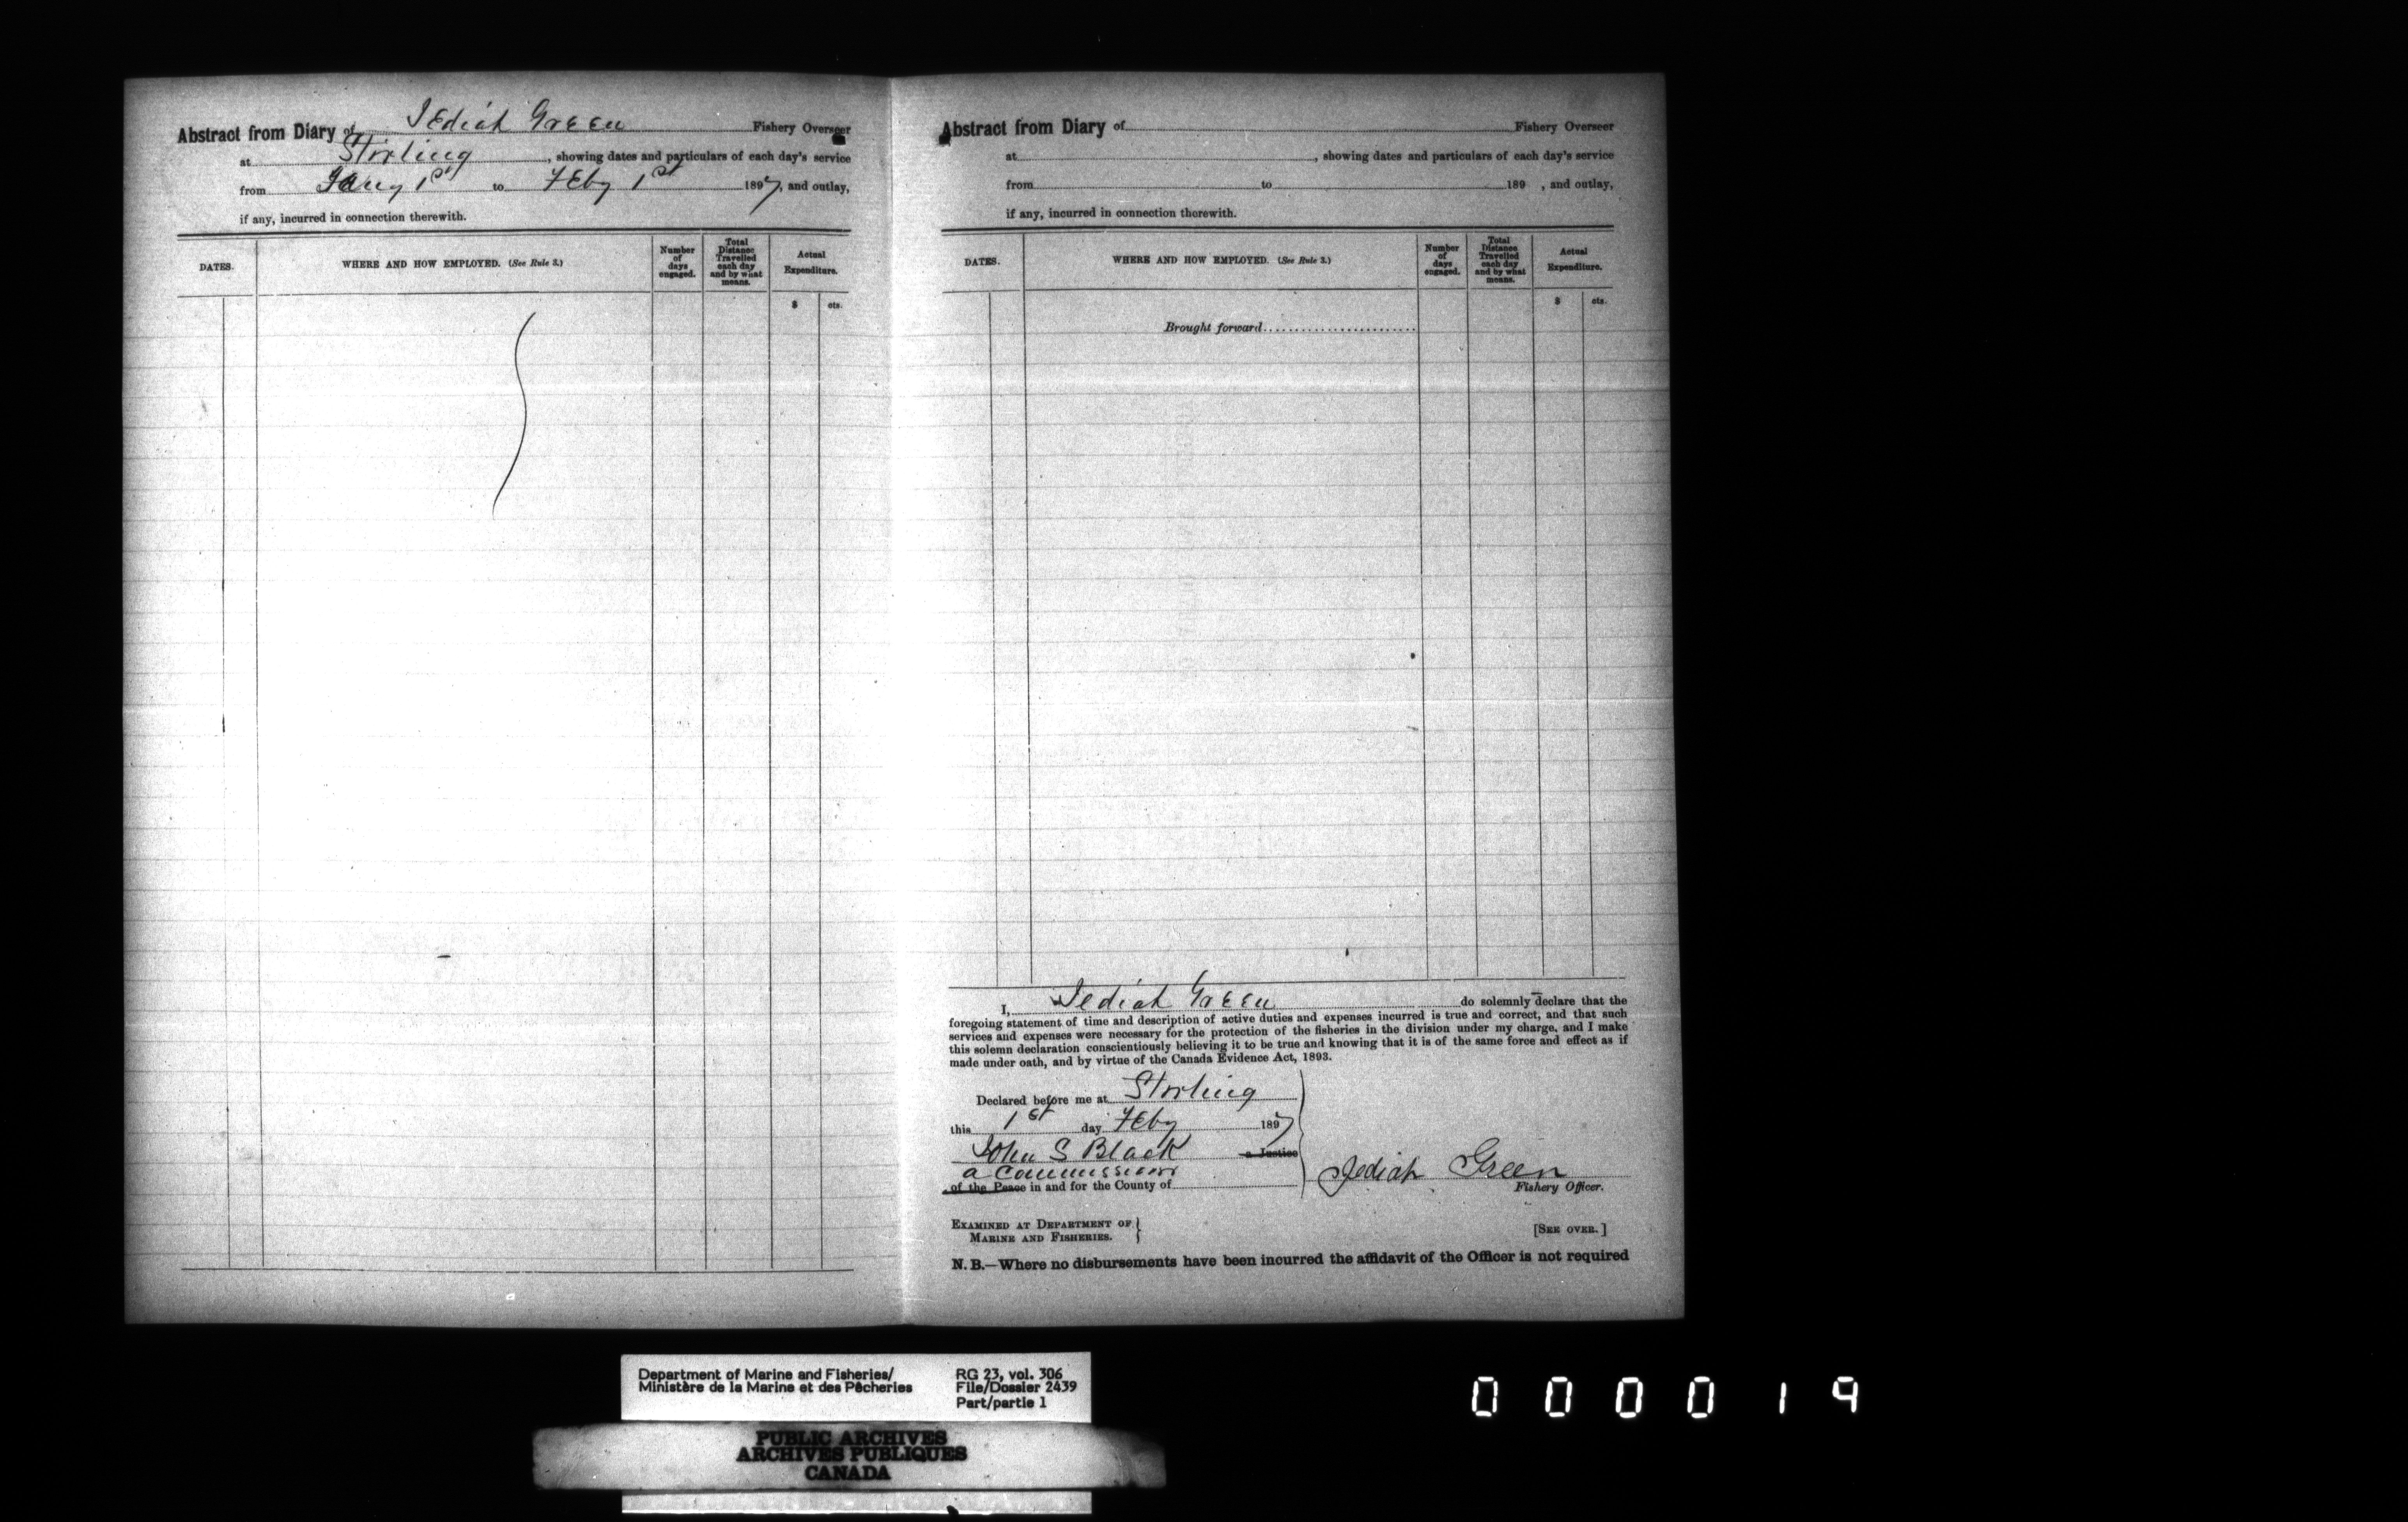 Abstract from Diary of Jediah Green Fishery Overseer
at Stirling, showing dates and particulars of each day's service
from Jany 1st to Feby 1st 1897, and outlay,
if any, incurred in connection therewith.
DATES. WHERE AND HOW EMPLOYED. (See Rule 3.) Number of days engaged. Total Distance Travelled each day and by what means. Actual Expenditure.
$ cts.
Abstract from Diary of Fishery Overseer
at , showing dates and particulars of each day's service
from to 189 , and outlay,
if any, incurred in connection therewith.
DATES. WHERE AND HOW EMPLOYED. (See Rule 3.) Number of days engaged. Total Distance Travelled each day and by what means. Actual Expenditure.
$ cts.
Brought forward
I, Jediah Green do solemnly declare that the
foregoing statement of time and description of active duties and expenses incurred is true and correct, and that such
services and expenses were necessary for the protection of the fisheries in the division under my charge, and I make
this solemn declaration conscientiously believing it to be true and knowing that it is of the same force and effect as if
made under oath, and by virtue of the Canada Evidence Act, 1893.
Declared before me at Stirling
this 1st day Feby 1897
John S Black a Justice
a Commissioner
of the Peace in and for the County of
Jediah Green
Fishery Officer.
EXAMINED AT DEPARTMENT OF
MARINE AND FISHERIES.
[SEE OVER.]
N. B.—Where no disbursements have been incurred the affidavit of the Officer is not required
Department of Marine and Fisheries/
Ministère de la Marine et des Pêcheries
RG 23, vol. 306
File/Dossier 2439
Part/partie 1
PUBLIC ARCHIVES
ARCHIVES PUBLIQUES
CANADA
000019